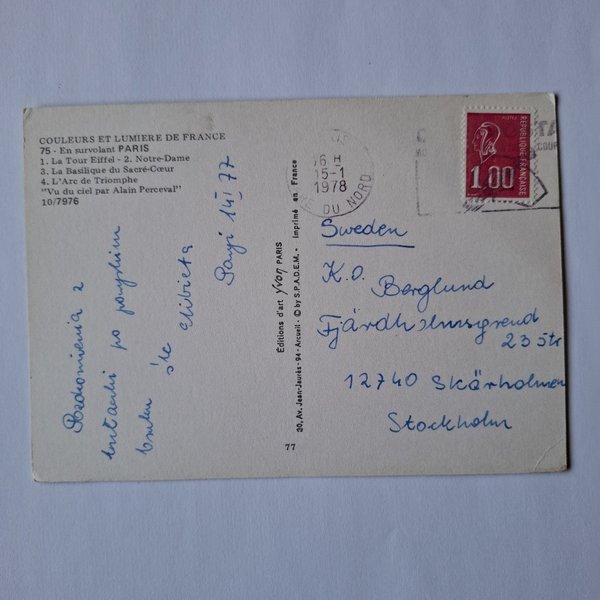 COULEURS ET LUMIERE DE FRANCE
75 - En survolant PARIS
1. La Tour Eiffel - 2. Notre-Dame
3. La Basilique du Sacré-Cœur
4. L'Arc de Triomphe
"Vu du ciel par Alain Perceval"
10/7976
Pozdrowienia z
po
Elżbieta
14 I 77
Editions d'art Yvon PARIS
30, Av. Jean-Jaurès - 94 - Arcueil - © by S.P.A.D.E.M. - Imprimé en France
77
16 H
15-1
1978
DU NORD
REPUBLIQUE FRANÇAISE
1,00
Sweden
K.O. Berglund
23 5tr
12740 Skärholmen
Stockholm